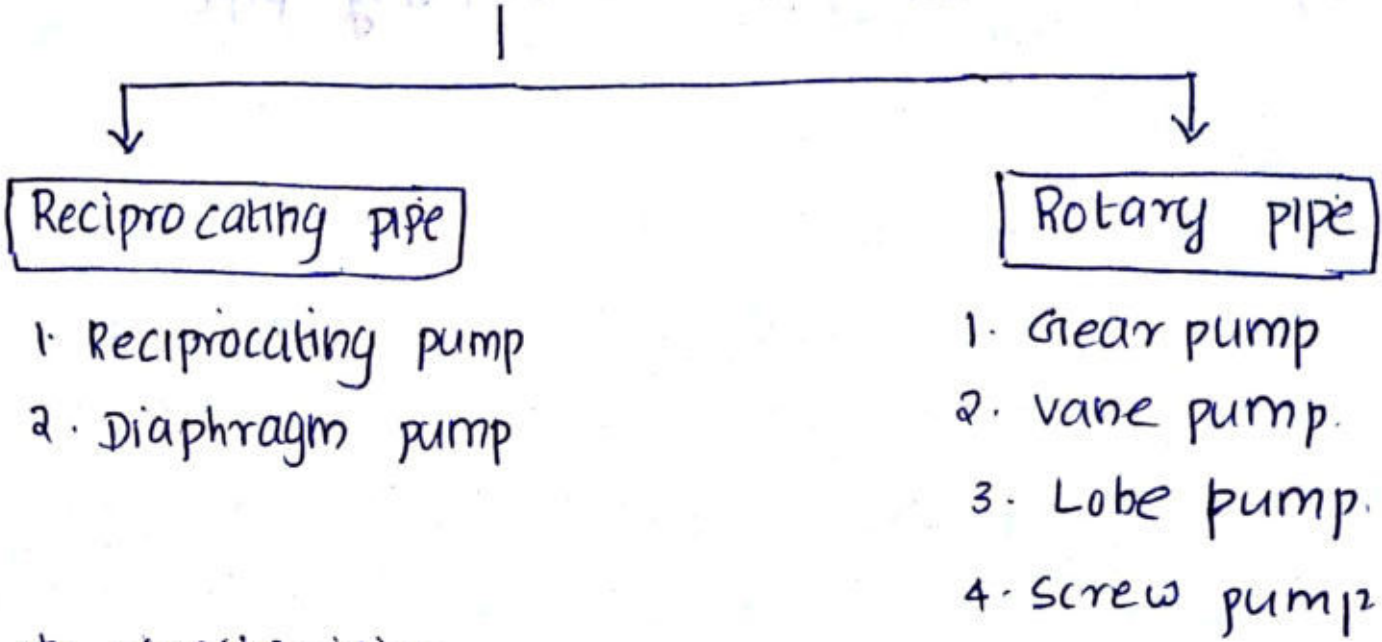 Reciprocating pipe
1. Reciprocating pump
2. Diaphragm pump
Rotary pipe
1. Gear pump
2. vane pump.
3. Lobe pump.
4. Screw pump